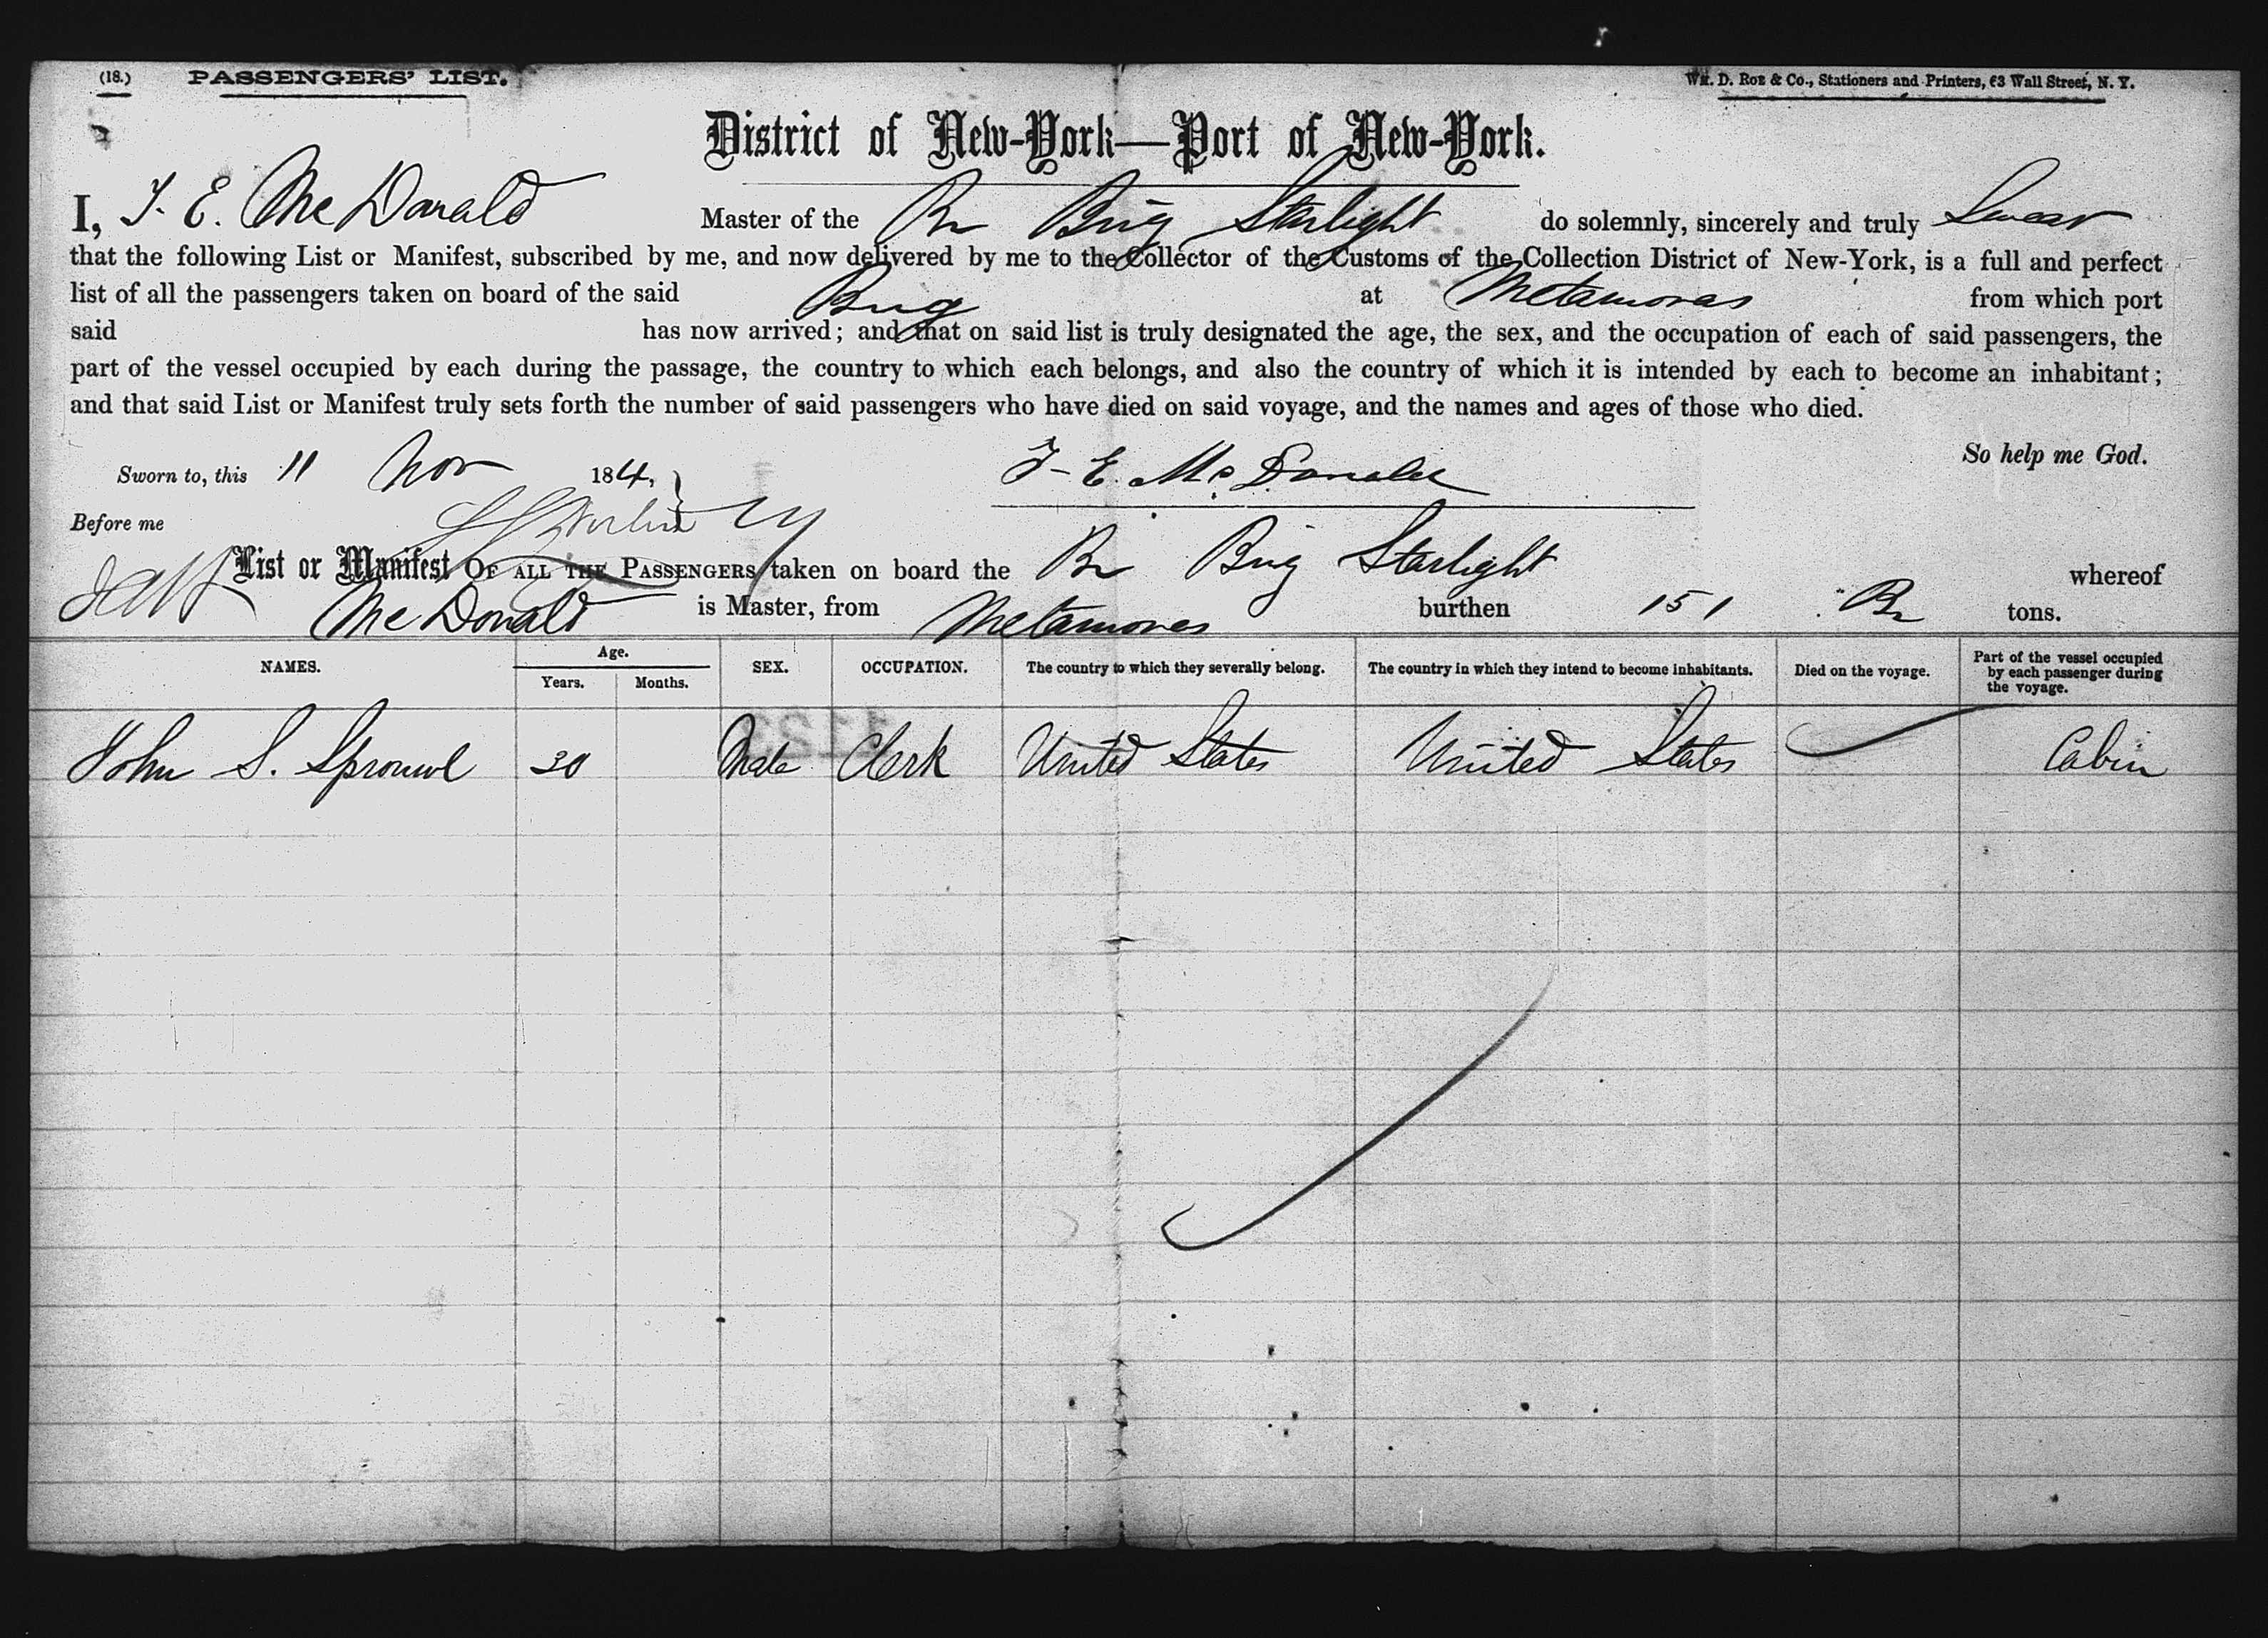 (18.) PASSENGERS' LIST. Wm. D. Roe & Co., Stationers and Printers, 63 Wall Street, N. Y.
District of New-York—Port of New-York.
I, T. E. McDonald Master of the Br Brig Starlight do solemnly, sincerely and truly Swear
that the following List or Manifest, subscribed by me, and now delivered by me to the Collector of the Customs of the Collection District of New-York, is a full and perfect
list of all the passengers taken on board of the said Brig at Metamoras from which port
said has now arrived; and that on said list is truly designated the age, the sex, and the occupation of each of said passengers, the
part of the vessel occupied by each during the passage, the country to which each belongs, and also the country of which it is intended by each to become an inhabitant;
and that said List or Manifest truly sets forth the number of said passengers who have died on said voyage, and the names and ages of those who died.
So help me God.
Sworn to, this 11 Nov 184, T. E. McDonald
Before me
List or Manifest OF ALL THE PASSENGERS taken on board the Br Brig Starlight whereof
McDonald is Master, from Metamoras burthen 151 Br tons.
NAMES. Age. Years. Months. SEX. OCCUPATION. The country to which they severally belong. The country in which they intend to become inhabitants. Died on the voyage. Part of the vessel occupied by each passenger during the voyage.
John S. Sproul 30 Male Clerk United States United States Cabin